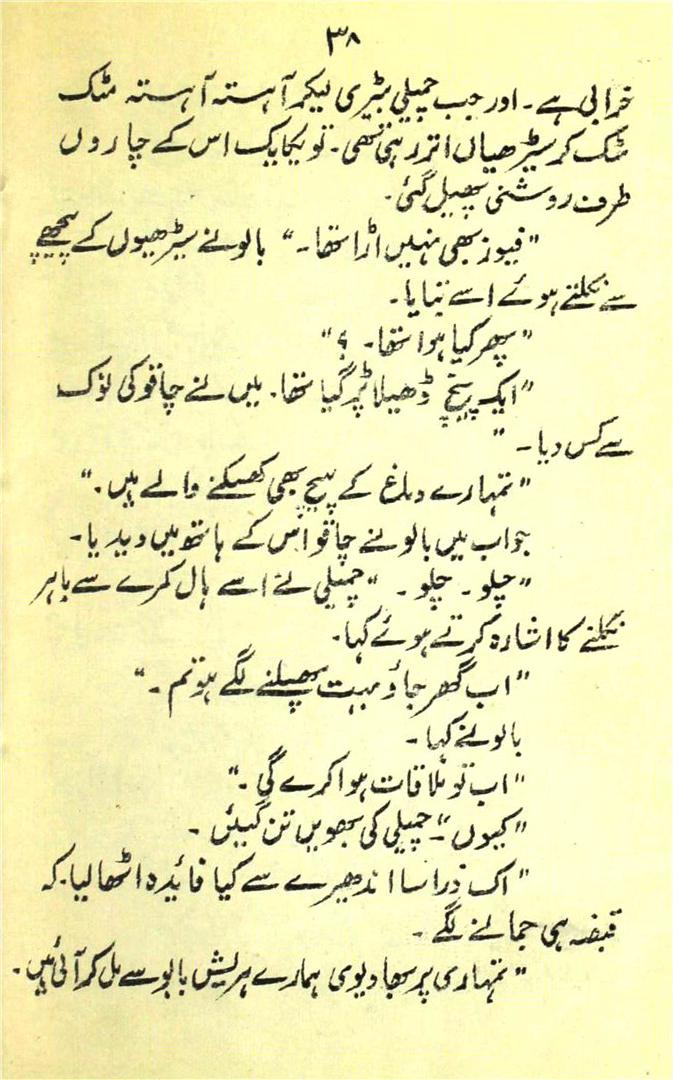 ۳۸
خرابی ہے۔ اور جب چمپلی بیٹری لیکر آہستہ آہستہ مٹک
مٹک کر سیڑھیاں اتر رہی تھی۔ تو یکایک اس کے چاروں
طرف روشنی پھیل گئی۔
"فیوز بھی نہیں اڑا تھا۔" بالو نے سیڑھیوں کے پیچھے
سے نکلتے ہوئے اسے بتایا۔
"پھر کیا ہوا تھا۔ ؟"
"ایک پیچ ڈھیلا پڑ گیا تھا۔ میں نے چاقو کی نوک
سے کس دیا۔ "
"تمہارے دماغ کے پیچ بھی کھسکنے والے ہیں۔"
جواب میں بالو نے چاقو اس کے ہاتھ میں دیدیا۔
"چلو۔ چلو۔ "چمپلی نے اسے ہال کمرے سے باہر
نکلنے کا اشارہ کرتے ہوئے کہا۔
"اب گھر جاؤ بہت پھیلنے لگے ہو تم۔"
بالو نے کہا۔
"اب تو ملاقات ہوا کرے گی۔"
"کیوں"۔ چمپلی کی بھویں تن گیئں۔
"اک ذرا سا اندھیرے سے کیا فائدہ اٹھا لیا۔ کہ
قبضہ ہی جمانے لگے۔
"تمہاری پرسبھا دیوی ہمارے ہریش بابو سے مل کر آئی ہیں۔